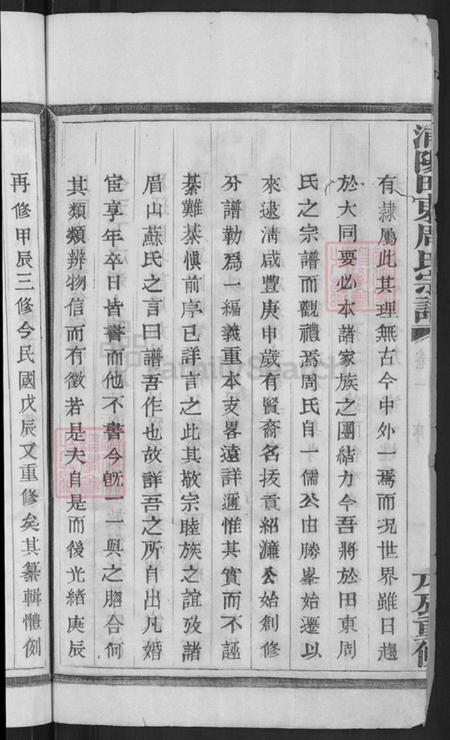 有隷屬此其理無古今中外一焉而况世界雖日趨
於大同要必本諸家族之團結力今吾將於田東周
氏之宗譜而觀禮焉周氏自一儒公由勝峯始遷以
來逮淸咸豐庚申歲有賢裔名拔貢紹濂公始創修
分譜勒爲一編義重本支畧遠詳邇惟其實而不誣
綦難綦愼前序已詳言之此其敬宗睦族之誼殁諸
眉山蘇氏之言曰譜吾作也故詳吾之所自出凡婚
宦享年卒日皆書而他不書今旣一與之脗合何
其類類辨物信而有徵若是夫自是而後光緒庚辰
再修甲辰三修今民國戊辰又重修矣其纂輯體例
田東周氏宗譜
卷一
序
重修
FamilySearch